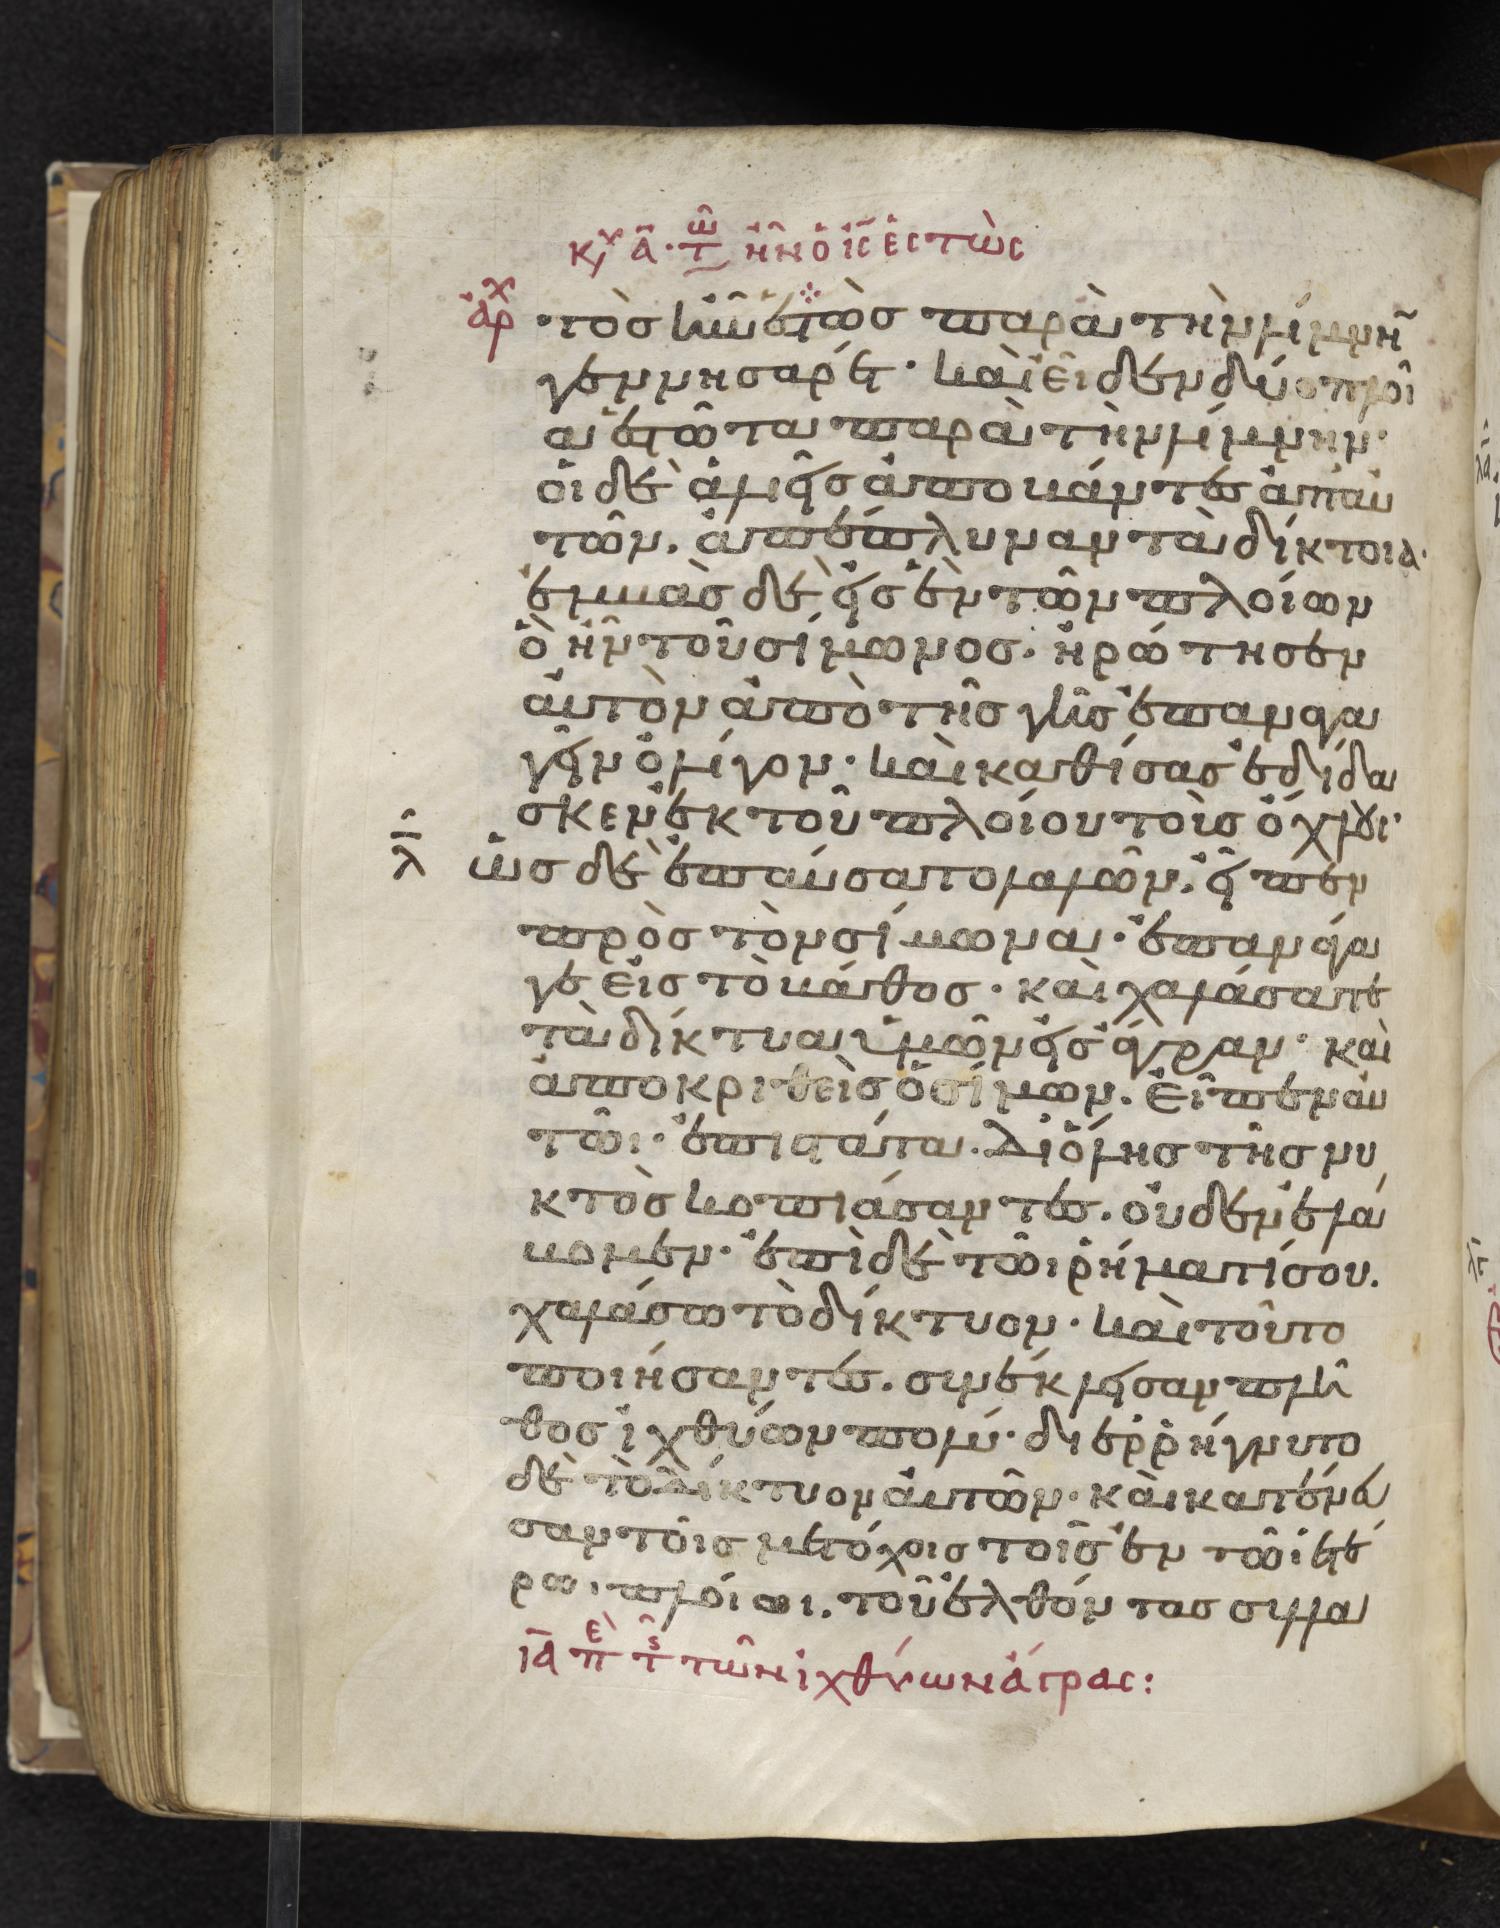 κυ ᾱ· τω ἦν ὁ ις ἑστὼς
ἀρχ
τὸς ἦν ἑστὼς παρὰ τὴν λίμνη
γεννησαρέτ· καὶ εἶδεν δύο πλοῖ
α ἑστῶτα παρὰ τὴν λίμνην·
οἱ δὲ ἁλιεῖς ἀποβάντες ἀπ' αὐ
τῶν. ἀπέπλυναν τὰ δίκτοια·
ἐμβὰς δὲ εἰς ἓν τῶν πλοίων
ὃ ἦν τοῦ σίμωνος. ἠρώτησεν
αὐτὸν ἀπὸ τῆς γῆς ἐπαναγα
γεῖν ὀλίγον· καὶ καθίσας ἐδίδα
σκεν ἐκ τοῦ πλοίου τοὺς ὄχλους·
λ̄
ὡς δὲ ἐπαύσατο λαλῶν. εἶπεν
πρὸς τὸν σίμωνα· ἐπανάγα
γε εἰς τὸ βάθος· καὶ χαλάσατε
τὰ δίκτυα ὑμῶν εἰς ἄγραν· καὶ
ἀποκριθεὶς ὁ σίμων. εἶπεν αὐ
τῶι· ἐπιστάτα. δι' ὅλης τῆς νυ
κτὸς κοπιάσαντες. οὐδὲν ἐλά
βομεν· ἐπὶ δὲ τῶι ῥήματί σου.
χαλάσω τὸ δίκτυον· καὶ τοῦτο
ποιήσαντες. συνέκλεισαν πλῆ
θος ἰχθύων πολύ· διερρήγνυτο
δὲ τὸ δίκτυον αὐτῶν· καὶ κατένευ
σαν τοῖς μετόχοις τοῖς ἐν τῶι ἑτέ
ρωι πλοίωι. τοῦ ἐλθόντας συλλα
ιᾱ πε τς τῶν ἰχθύων ἄγρας: